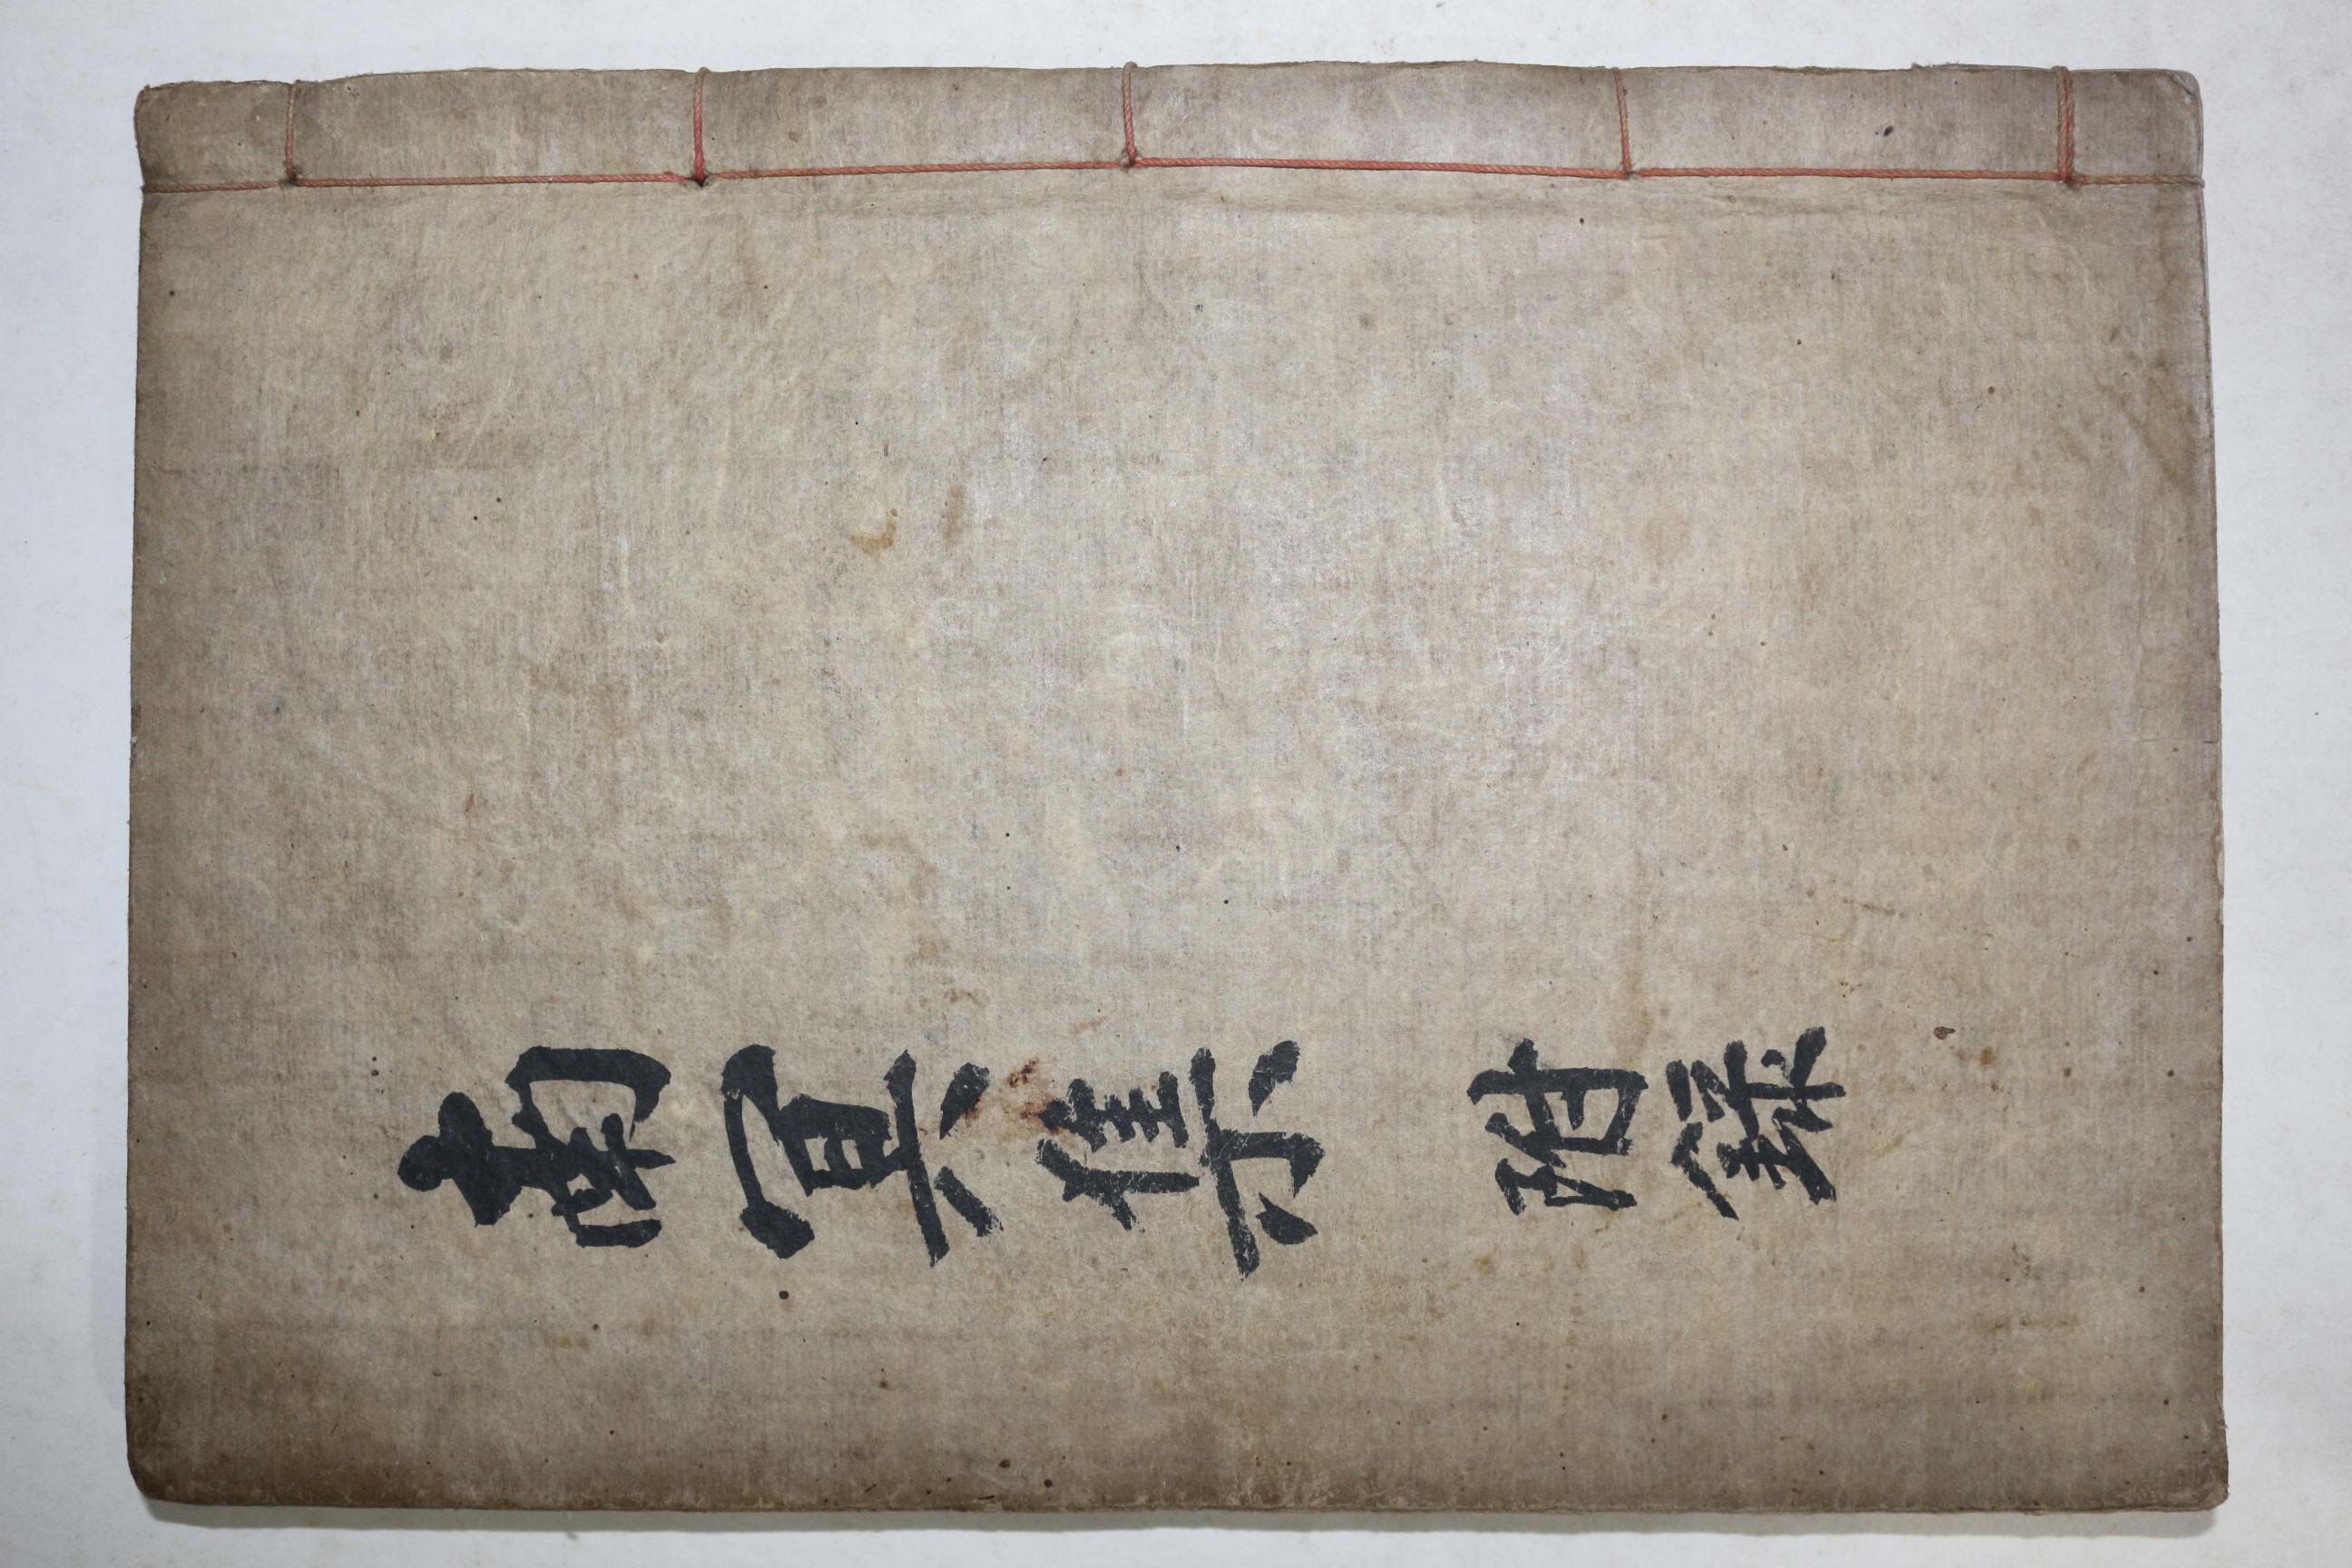 南冥集 附錄